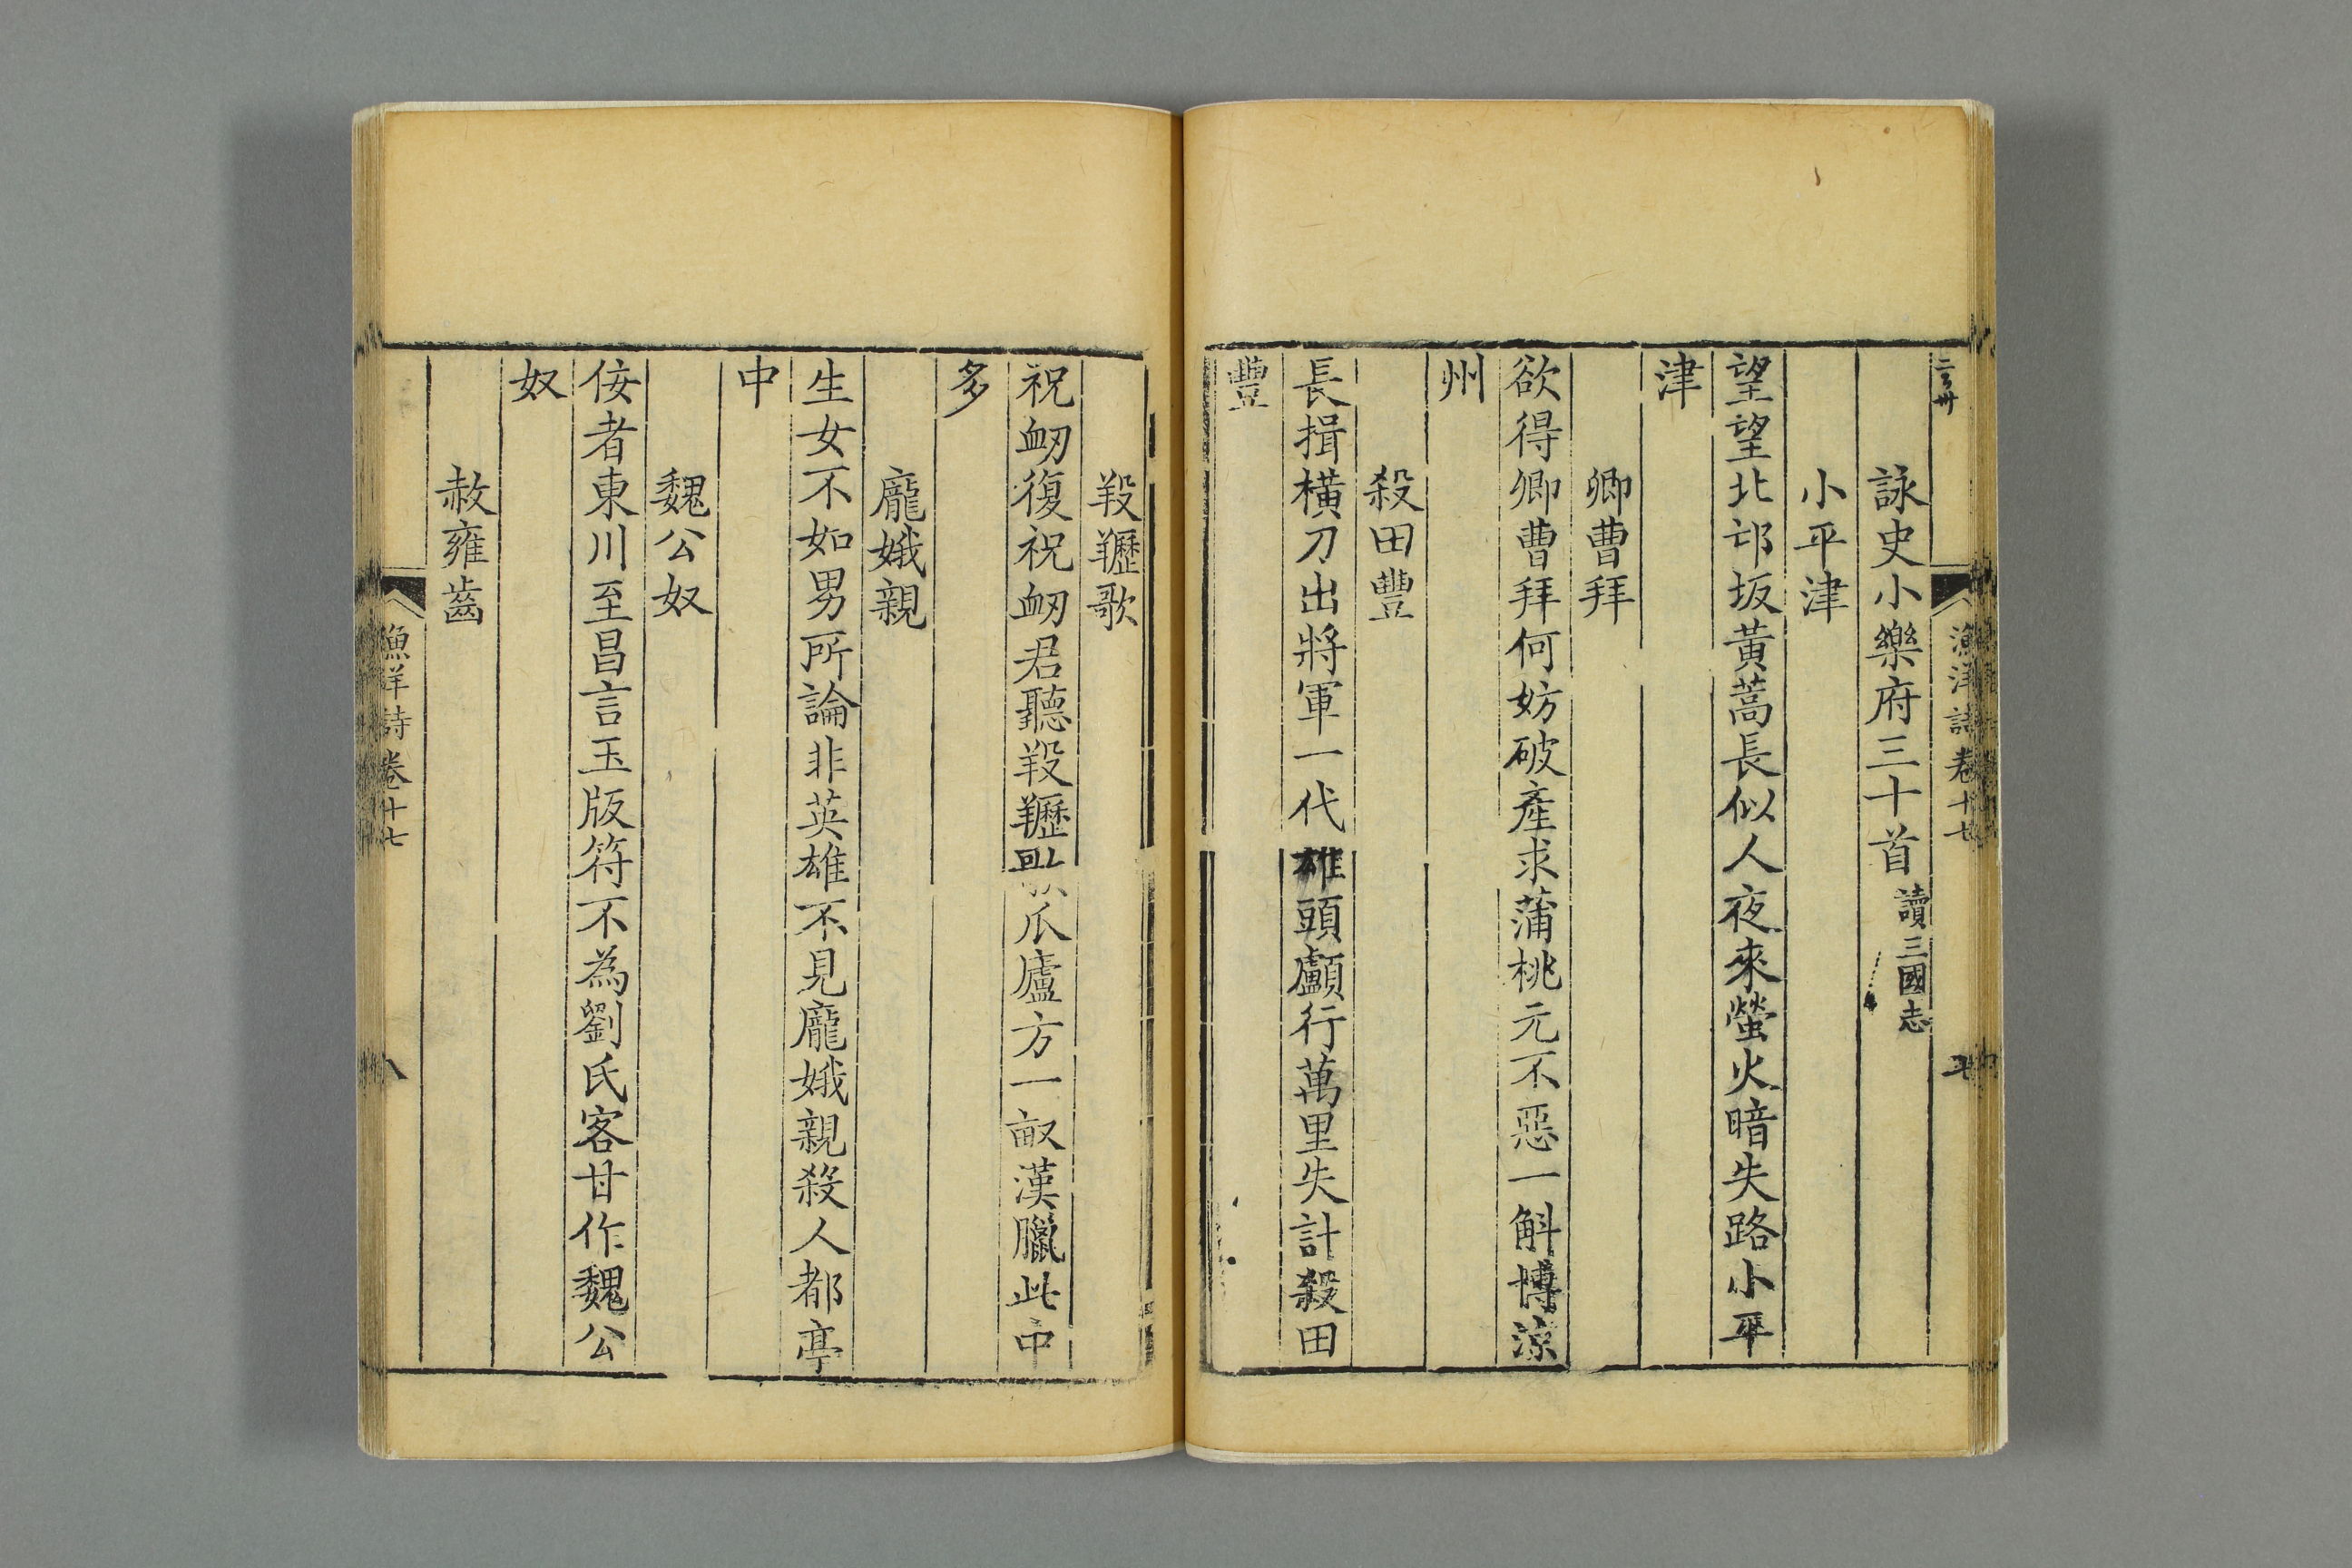 漁洋詩卷十七
詠史小樂府三十首 讀三國志
小平津
望望北邙坂黃蒿長似人夜來螢火暗失路小平
津
卿曹拜
欲得卿曹拜何妨破產求蒲桃元不惡一斛博涼
州
殺田豐
長揖橫刀出將軍一代雄頭顱行萬里失計殺田
豐
羖䍽歌
祝衂復祝衂君聽羖䍽歌爪廬方一畝漢臘此中
多
龐娥親
生女不如男所論非英雄不見龐娥親殺人都亭
中
魏公奴
侫者東川至昌言玉版符不為劉氏客甘作魏公
奴
赦雍齒
漁洋詩卷十七
八